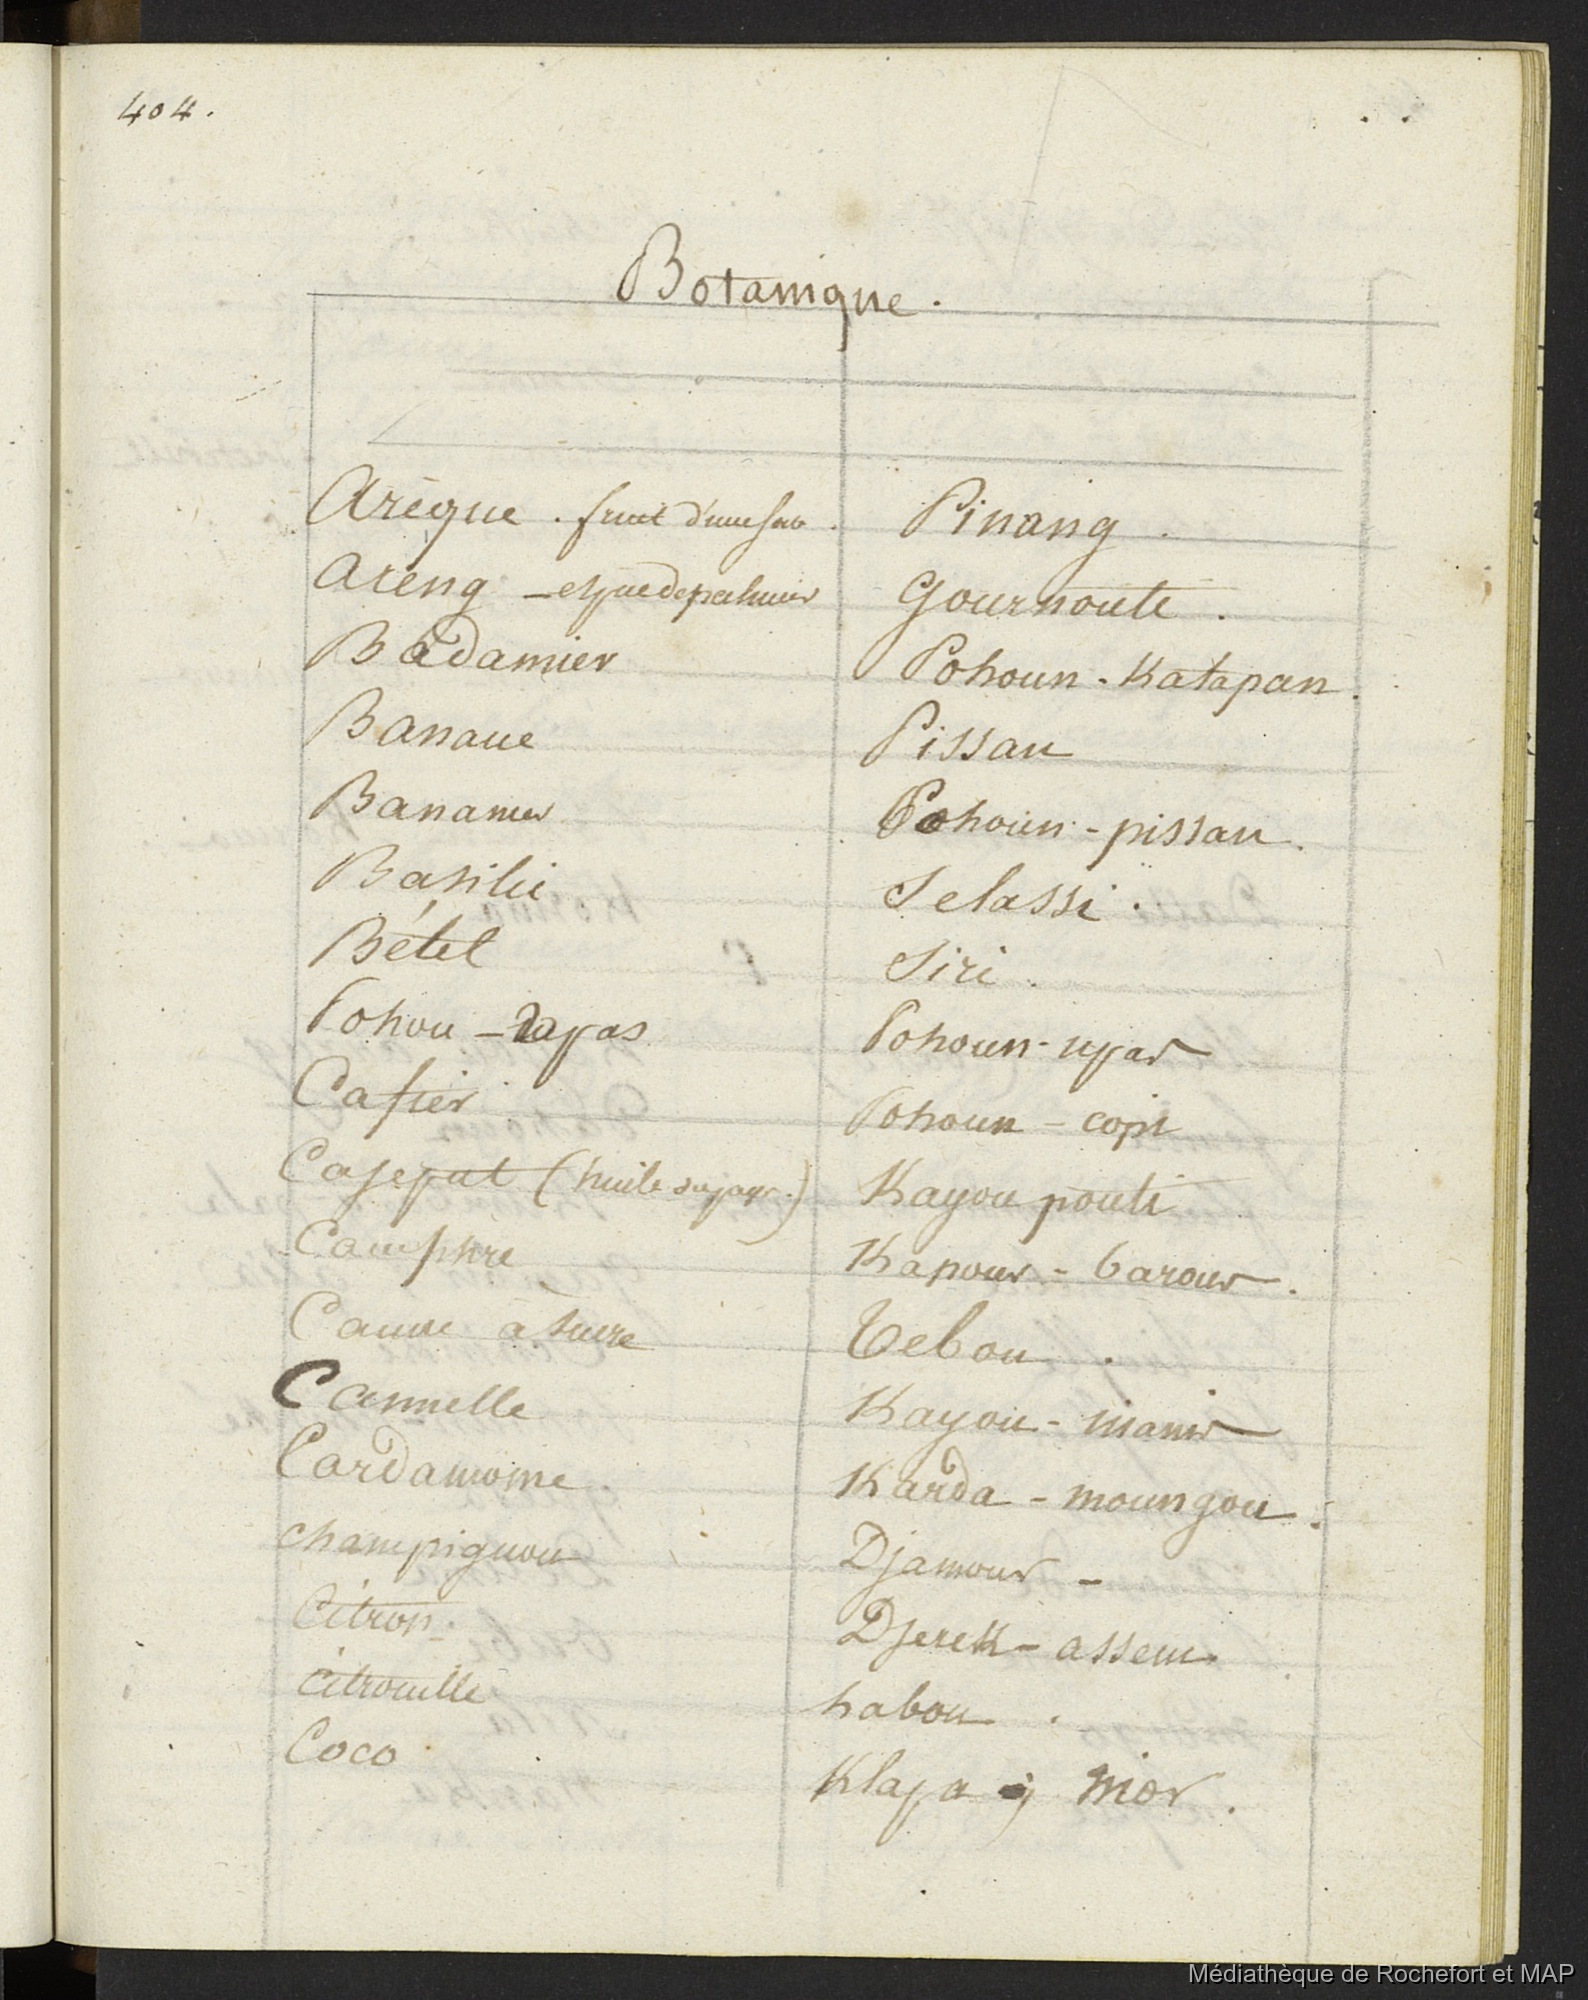 404.
Botanique.
Arèque . fruit d'une Pinang .
Areng - espece de palmier Gournouté .
Badamier Pohoun - Katapan .
Banane Pissan
Bananier Pohoun - pissan .
Basilic Selassi .
Bétel Siri .
Pohou - upas Pohoun - upas
Cafier Pohoun - copi
Cajeput (huile du pays.) Kayou pouti
Camphre Kapour - barour .
Canne à sucre Tebou .
Cannelle Kayou - manis
Cardamome Karda - moungou .
champignon Djamour -
Citron Djerek - assem .
Citrouille Labou .
Coco Klapa ; nior .
Médiathèque de Rochefort et MAP